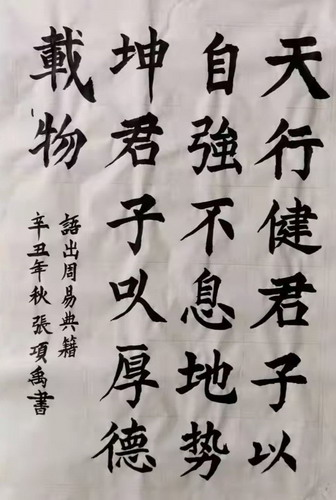 天行健君子以
自強不息地势
坤君子以厚德
載物
語出周易典籍
辛丑年秋張項禹書